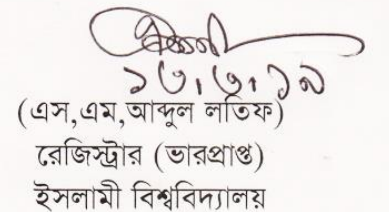 ১৩.৩.১৯
(এস,এম,আব্দুল লতিফ)
রেজিস্ট্রার (ভারপ্রাপ্ত)
ইসলামী বিশ্ববিদ্যালয়